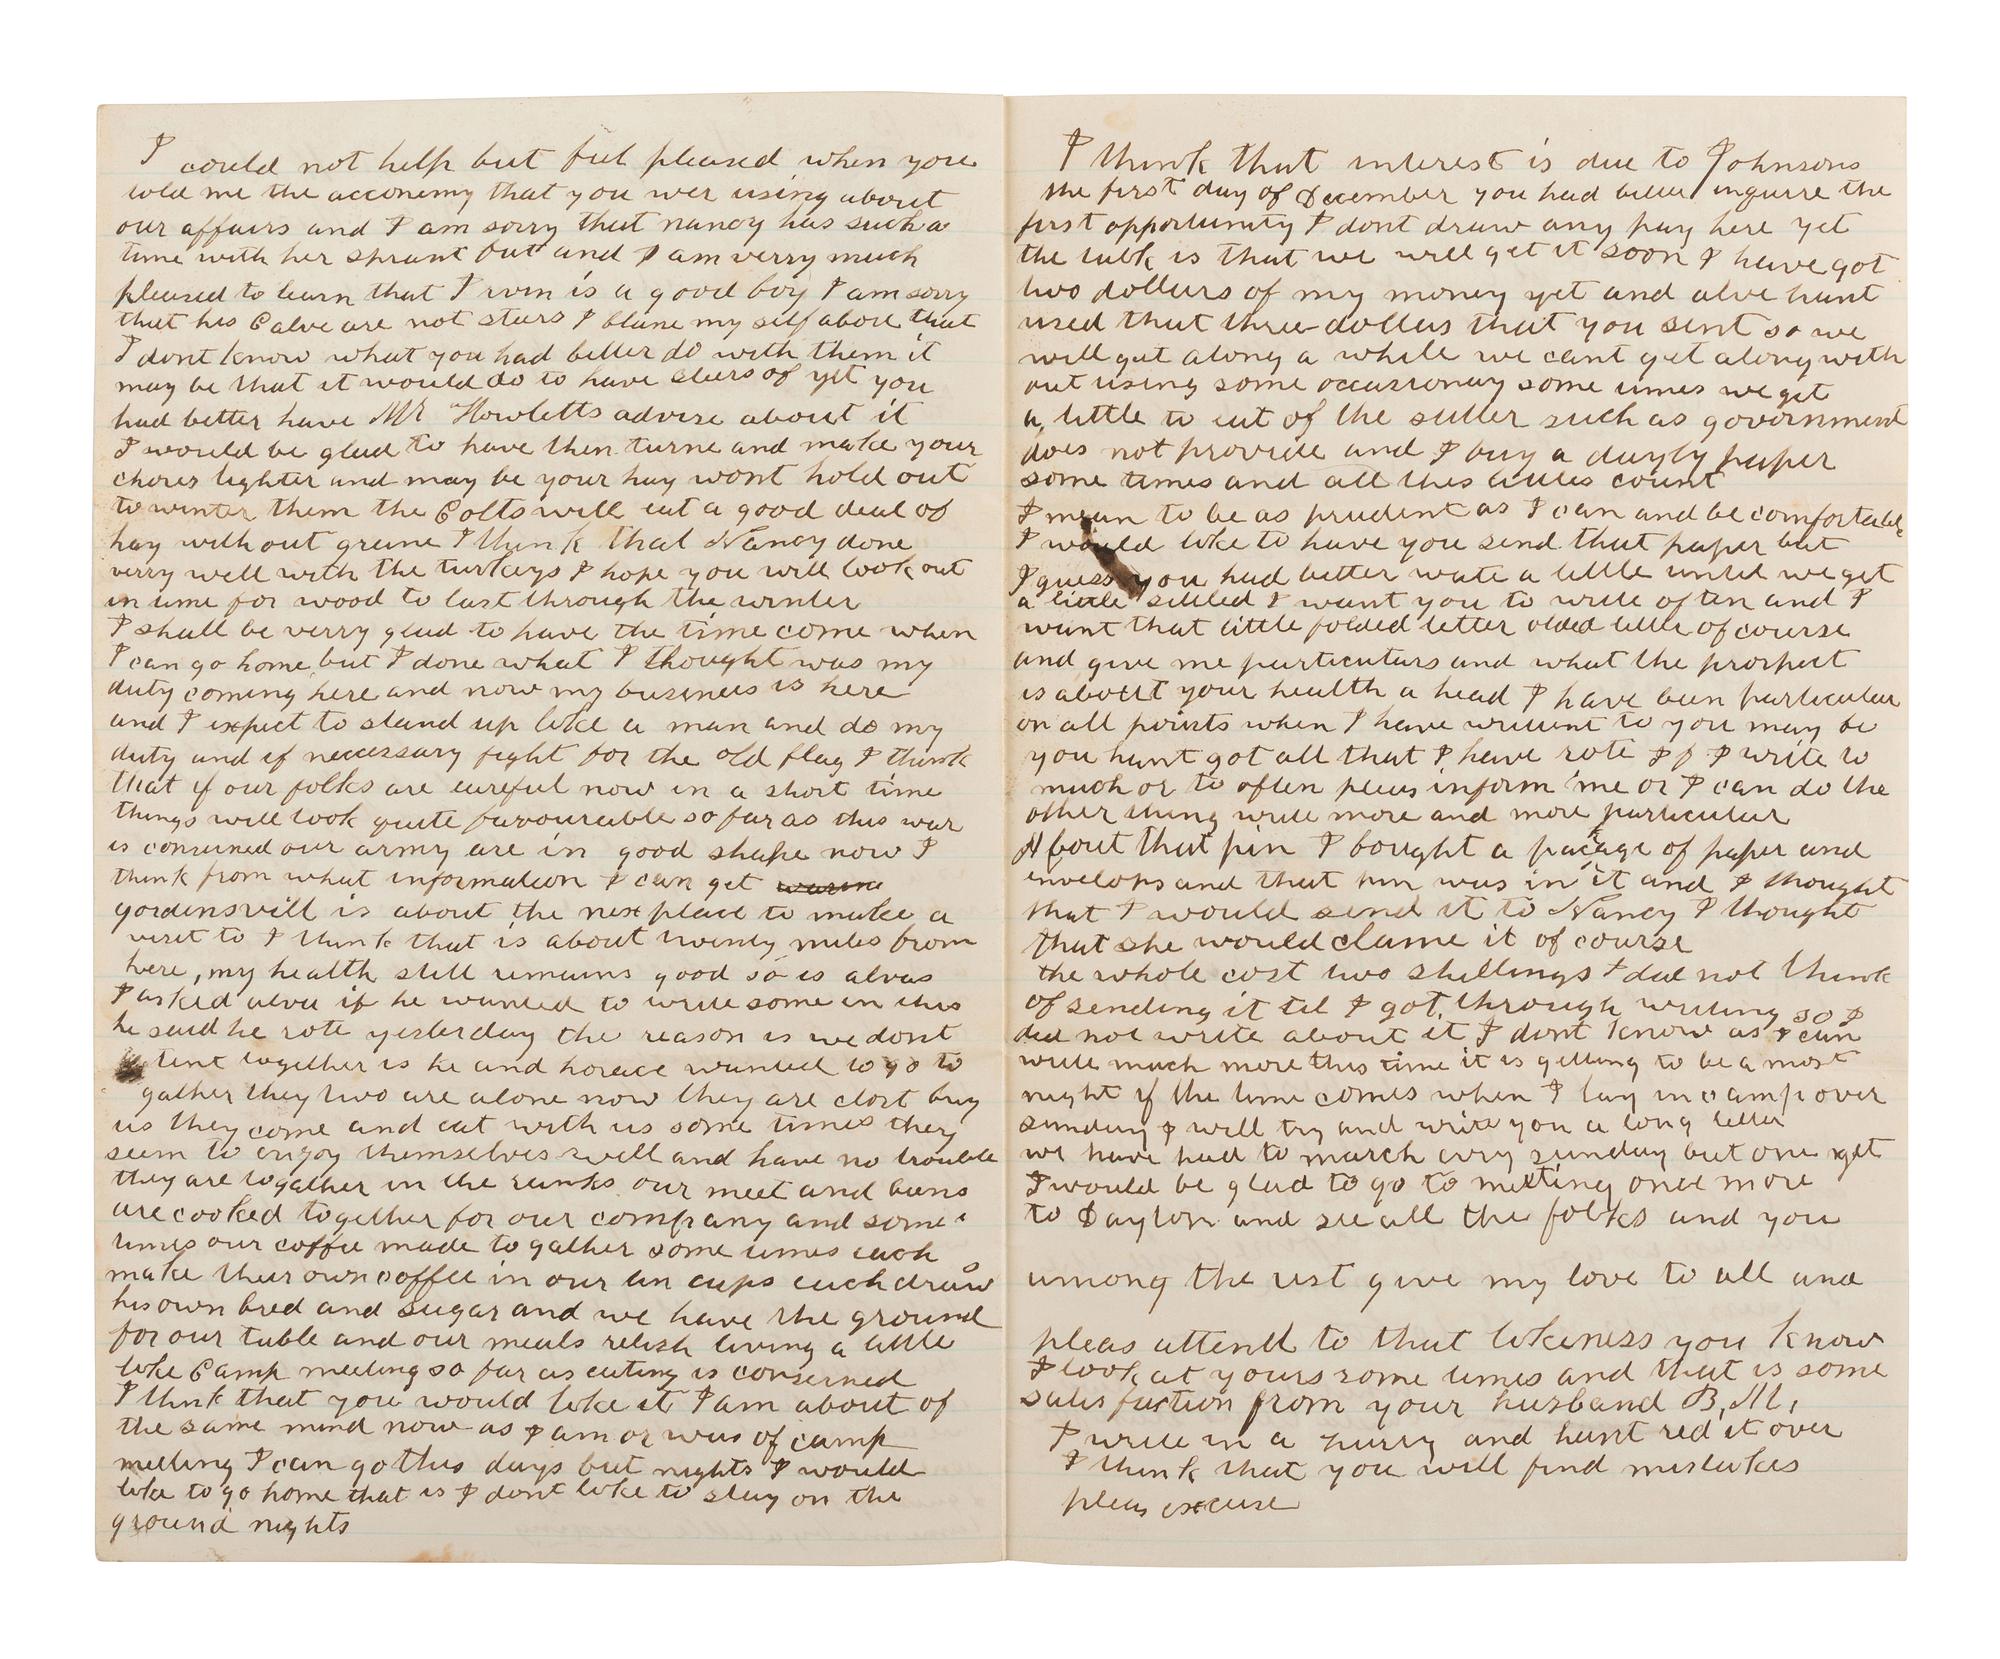 I could not help but feel pleased when you
told me the acconemy that you wer using about
our affairs and I am sorry that nancy has such a
time with her spraint but and I am verry much
pleased to learn that Irvin is a good boy I am sorry
that his Calve are not stears I blame my self about that
I dont know what you had better do with them it
may be that it would do to have stears of yet you
had better have Mr Howletts advise about it
I would be glad to have then turne and make your
chores lighter and may be your hay wont hold out
to winter them the Colts will eat a good deal of
hay without graine I think that Nancy done
verry well with the turkeys I hope you will look out
in time for wood to last through the winter
I shall be verry glad to have the time come when
I can go home but I done what I thought was my
duty coming here and now my business is here
and I expect to stand up like a man and do my
duty and if necessary fight for the old flag I think
that if our folks are careful now in a short time
things will look quite favourable so far as this war
is consurned our army are in good shape now I
think from what information I can get
gordensvill is about the nex place to make a
visit to I think that is about twenty miles from
here, my health still remains good so is alvas
I asked alva if he wanted to write some in this
he said he rote yesterday the reason is we dont
tent together is he and horace wanted to go to
gather they two are alone now they are clost buy
us they come and eat with us some times they
seem to enjoy themselves well and have no trouble
they are togather in the ranks our meet and beens
are cooked together for our company and some
times our coffee made to gather some times each
make their own coffee in our tin cups each draw
his own bred and sugar and we have the ground
for our table and our meals relish living a little
like Camp meeting so far as eating is conserned
I think that you would like it I am about of
the same mind now as I am or was of camp
meeting I can go this days but nights I would
like to go home that is I dont like to stay on the
ground nights
I think that interest is due to Johnsons
the first day of December you had better inquire the
first opportunity I dont draw any pay here yet
the talk is that we will get it soon I have got
two dollars of my money yet and alve hant
used that three dollars that you sent so we
will get along a while we cant get along with
out using some occasionay some times we get
a little to eat of the sutler such as government
does not provide and I buy a dayly paper
some times and all this littles count
I mean to be as prudent as I can and be comfortable
I would like to have you send that paper but
I guess you had better wate a little until we get
a little setled I want you to write often and I
want that little folded letter olded little of course
and give me particulars and what the prospect
is about your health a head I have been particular
on all points when I have writent to you may be
you hant got all that I have rote If I write to
much or to often pleas inform me or I can do the
other thing write more and more particular
About that pin I bought a pacage of paper and
envelops and that pin was in it and I thought
that I would send it to Nancy I thought
that she would clame it of course
the whole cost two shillings I did not think
of sending it til I got through writing so I
did not write about it I dont know as I can
write much more this time it is getting to be a most
night if the time comes when I lay in camp over
sunday I will try and write you a long letter
we have had to march evry sunday but one yet
I would be glad to go to meeting once more
to Dayton and see all the folks and you
among the rest give my love to all and
pleas attend to that likeness you know
I look at yours some times and that is some
satisfaction from your husband B, M,
I write in a hurry and hant red it over
I think that you will find mistakes
pleas excuse